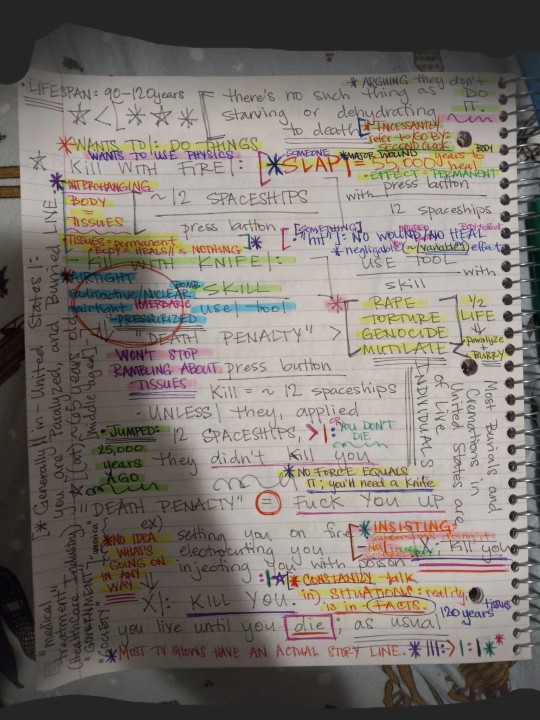 * ARGUING they don't DO IT.
LIFESPAN: 90-120 years
there's no such thing as
starving or dehydrating
to death
* INCESSANTLY
refer to GO BY:
SECOND CLOCK
BODY
* WANTS TO |: DO THINGS
WANTS TO USE PHYSICS
Kill WITH FIRE|:
SOMEONE
* SLAP| =
* MAJOR WOUND
years to heal
= EFFECT = PERMANENT
* INTERCHANGING
BODY
=
TISSUES
~ 12 SPACESHIPS
with press button
12 spaceships
press button
TISSUES = permanent
* BODY = HEALS/IS NOTHING
[SOMETHING]
"hit"|: NO WOUND/NO HEAL
* negligible (~variables) effects
Kill WITH KNIFE|:
USE TOOL
with
skill
* AIRTIGHT
BOMB
radioactive/NUCLEAR
airtight OVERBARIC
- PRESSURIZED
SKILL
use| tool
"DEATH PENALTY" >
* RAPE
TORTURE
GENOCIDE
MUTILATE
1/2
LIFE
paralyze
BURRY
WON'T STOP
RAMBLING ABOUT
TISSUES
press button
Kill = ~ 12 spaceships
- UNLESS| they, applied
* JUMPED:
25,000
years
AGO
12 SPACESHIPS, >|:
OR YOU DON'T
DIE
they didn't kill you
* NO FORCE EQUALS
IT; you'll need a Knife
INDIVIDUALS
Most Burials and
Cremations in
United States are
of Live
"DEATH PENALTY" = Fuck YOU UP
ex) setting you on fire
electrocuting you
injecting you with poison
* NO IDEA
WHAT'S
GOING ON
IN ANY
WAY
* INSISTING
doing it
kill you
* CONSTANTLY talk
in) SITUATIONS: reality
is in FACTS.
X|: KILL YOU.
120 years
tissues
you live until you die, as usual
* MOST TV SHOWS HAVE AN ACTUAL STORY LINE. *
[* Generally|| in - United States|:
you are Paralyzed, and Burried LIVE.
(at) ~65 years old
[middle aged]
"medical
treatment"
(Healthcare Industry)
"GOVERNMENT"
"SOCIETY"